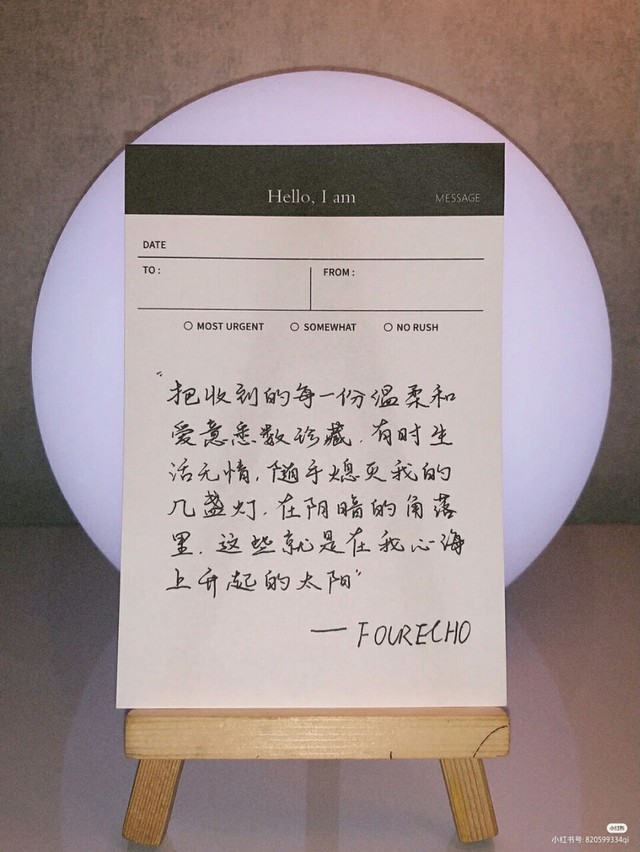 Hello, I am
MESSAGE
DATE
TO :
FROM :
MOST URGENT
SOMEWHAT
NO RUSH
“把收到的每一份温柔和
爱意悉数珍藏，有时生
活无情，随手熄灭我的
几盏灯，在阴暗的角落
里，这些就是在我心海
上升起的太阳”
— FOURECHO
小红书
小红书号: 820599334qi